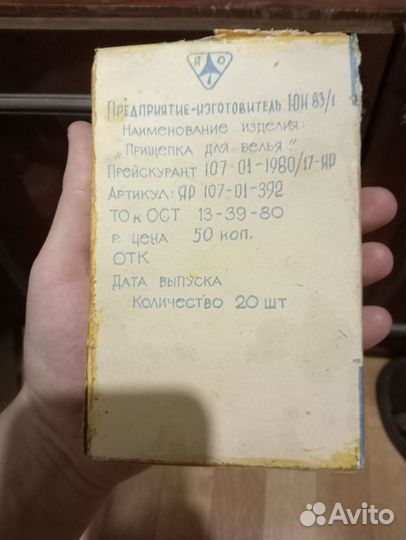 Я О
1
Предприятие-изготовитель ЮН 83/1
Наименование изделия:
„Прищепка для белья"
Прейскурант 107-01-1980/17-ЯР
Артикул: ЯР 107-01-392
ТО к ОСТ 13-39-80
р. цена 50 коп.
ОТК
Дата выпуска
Количество 20 шт
Avito